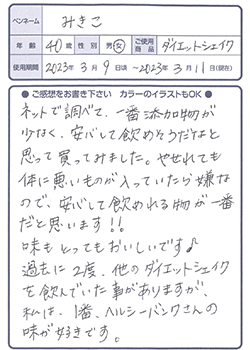 ペンネーム みきこ
年齢 40歳 性別 男・女 ご使用商品 ダイエットシェイク
使用期間 2023年3月9日頃〜2023年3月11日(現在)
● ご感想をお書き下さい カラーのイラストもOK ●
ネットで調べて、一番添加物が
少なく、安心して飲めそうだなと
思って買ってみました。やせれても
体に悪いものが入っていたら嫌な
ので、安心して飲めれる物が一番
だと思います!!
味もとってもおいしいです♪
過去に2度、他のダイエットシェイク
を飲んでいた事がありますが、
私は、1番、ヘルシーバンクさんの
味が好きです。